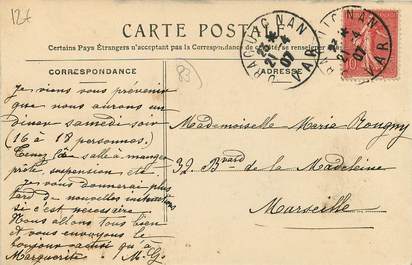 12f
CARTE POSTALE
Certains Pays Étrangers n'acceptant pas la Correspondance de ce côté, se renseigner
CORRESPONDANCE
ADRESSE
83
DRAGUIGNAN
22 *
21-4
07
VAR
DRAGUIGNAN
22 *
21-4
07
VAR
Je viens vous prévenir
que nous aurons un
diner samedi soir
(16 à 18 personnes.)
Tenez la salle à manger
prête, suspension etc.
Je vous donnerai plus
tard de nouvelles instructions
si c'est nécessaire
Nous allons tous bien
et vous envoyons le
bonjour qu'à
Marguerite. M. G.
Mademoiselle Maria Rougny
32, Bvard de la Madeleine
Marseille